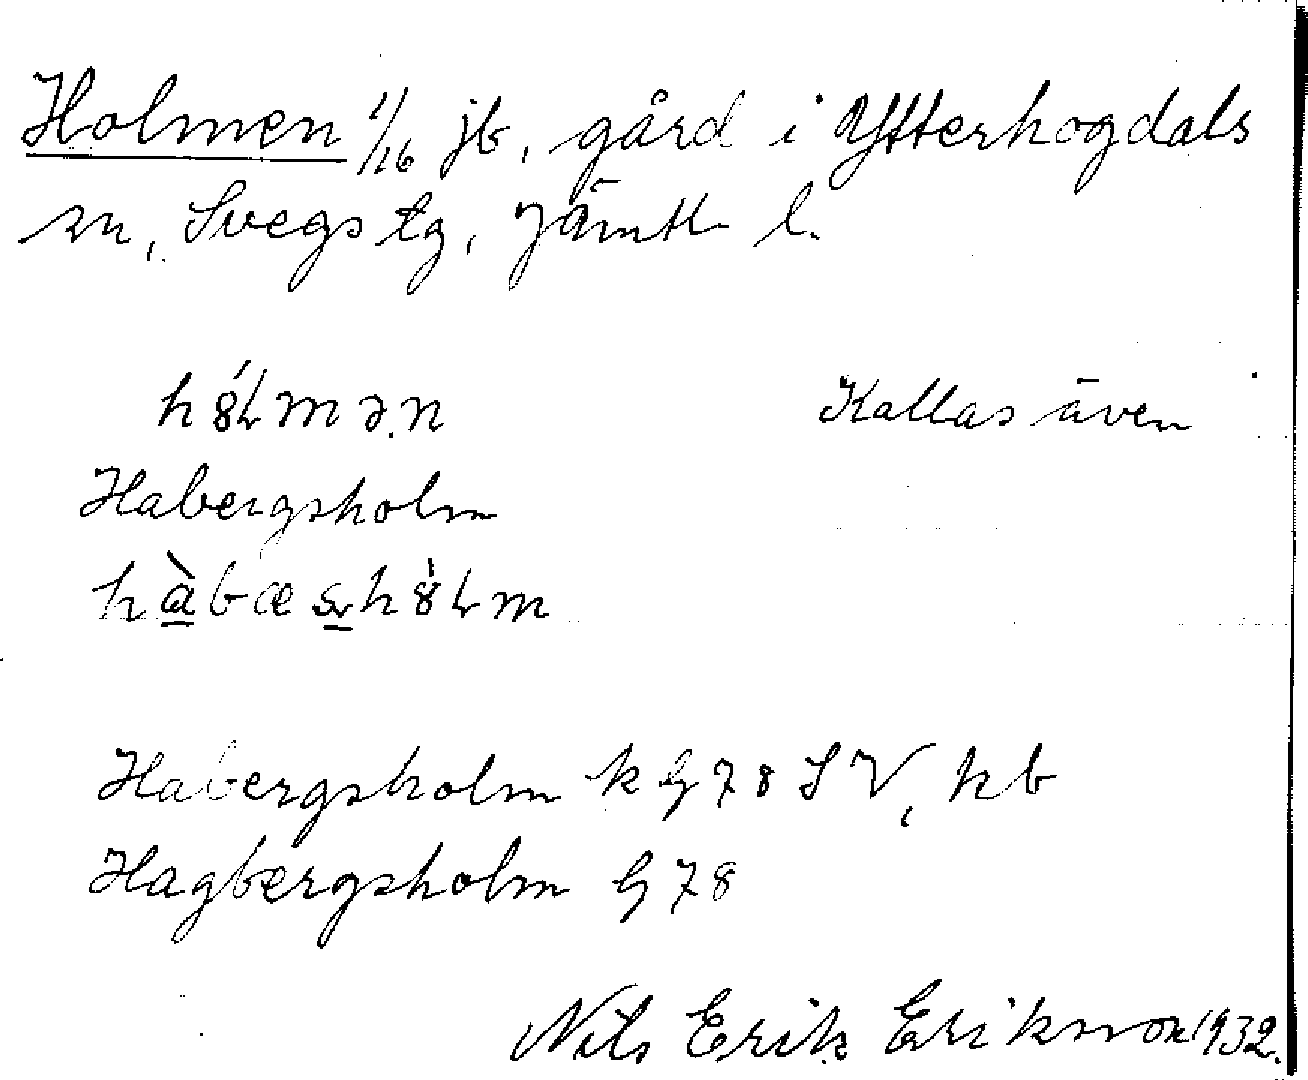 Holmen 1/16 jb, gård i Ytterhogdals
sn, Svegs tg, Jämtl l.
Kallas även
Habergsholm
Habergsholm k G 78 S V, kb
Hagbergsholm G 78
Nils Erik Eriksson 1932.